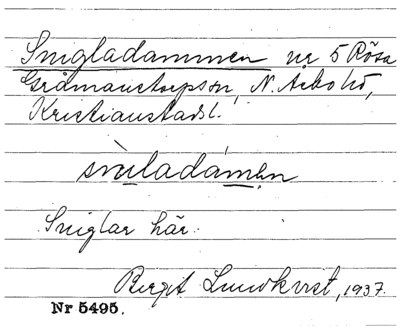 Snigladammen nr 5 Rösa
Grdmanstorpson, N. Åsbo hd,
Kristianstadsl.
sni̇̀ladámen
Sniglar här.
Birgit Lundkvist, 1937.
Nr 5495.